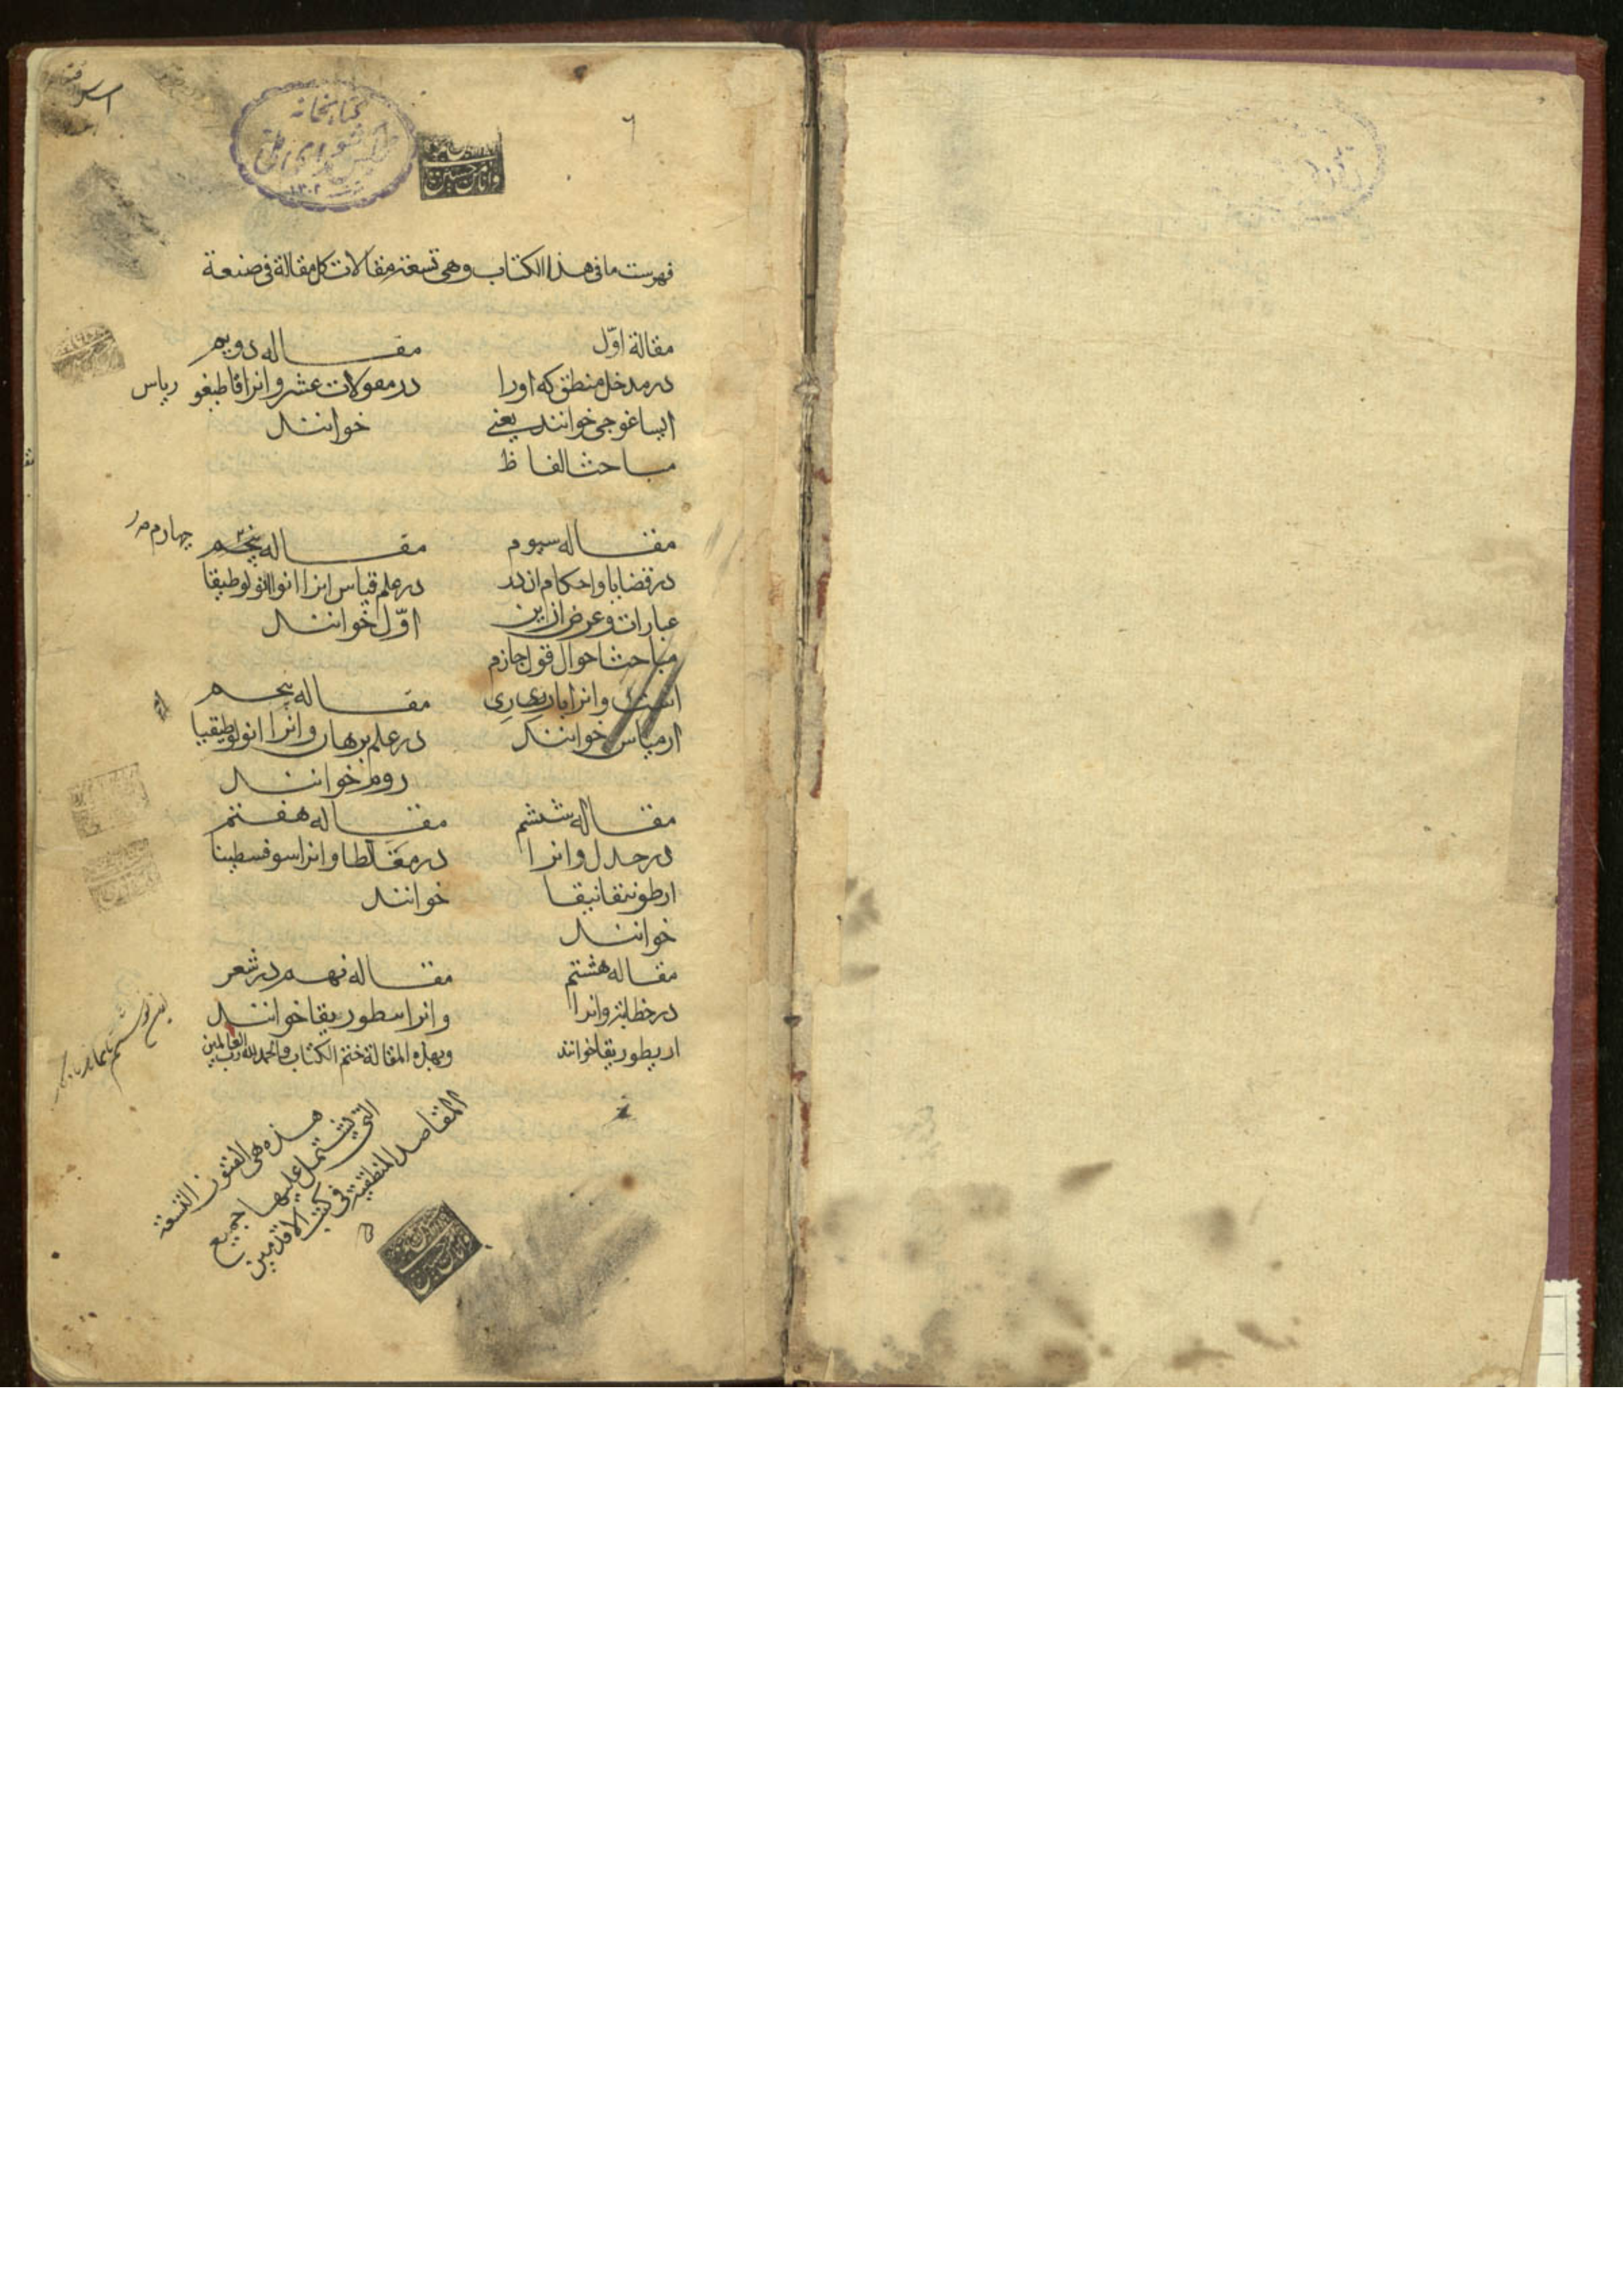 کتابخانه
مجلس شورای ملی
۱۳۰۲
فهرست مافی هذا الکتاب وهی تسعة مقالات کل مقالة فی صنعة
مقالة اوّل
در مدخل منطق که اورا
ایساغوجی خوانند یعنے
مباحث الفاظ
مقاله دویم
در مقولات عشر وانرا قاطیغو ریاس
خوانند
مقاله سیوم
در قضایا واحکام ان در
عبارات وعرض از این
مباحث احوال قول جازم
است وانرا باریری
ارمیاس خوانند
مقاله پنجم چهارم
در علم قیاس انرا انوالولوطیقا
اوّل خوانند
مقاله پنجم
در علم برهان وانرا انولوطیقیا
روم خوانند
مقاله ششم
در جدل وانرا
خوانند
مقاله هفتم
در مغلطا وانرا سوفسطینا
خوانند
مقاله هشتم
در خطابة وانرا
اریطوریقا خوانند
مقاله نهم در شعر
وانرا سطوریقا خوانند
وبهذه المقالة ختم الکتاب والحمد لله رب العالمین
هذه هی الفنون التسعة
التی یشتمل علیها جمیع
المقاصد المنطقیة فی کتب الاقدمین